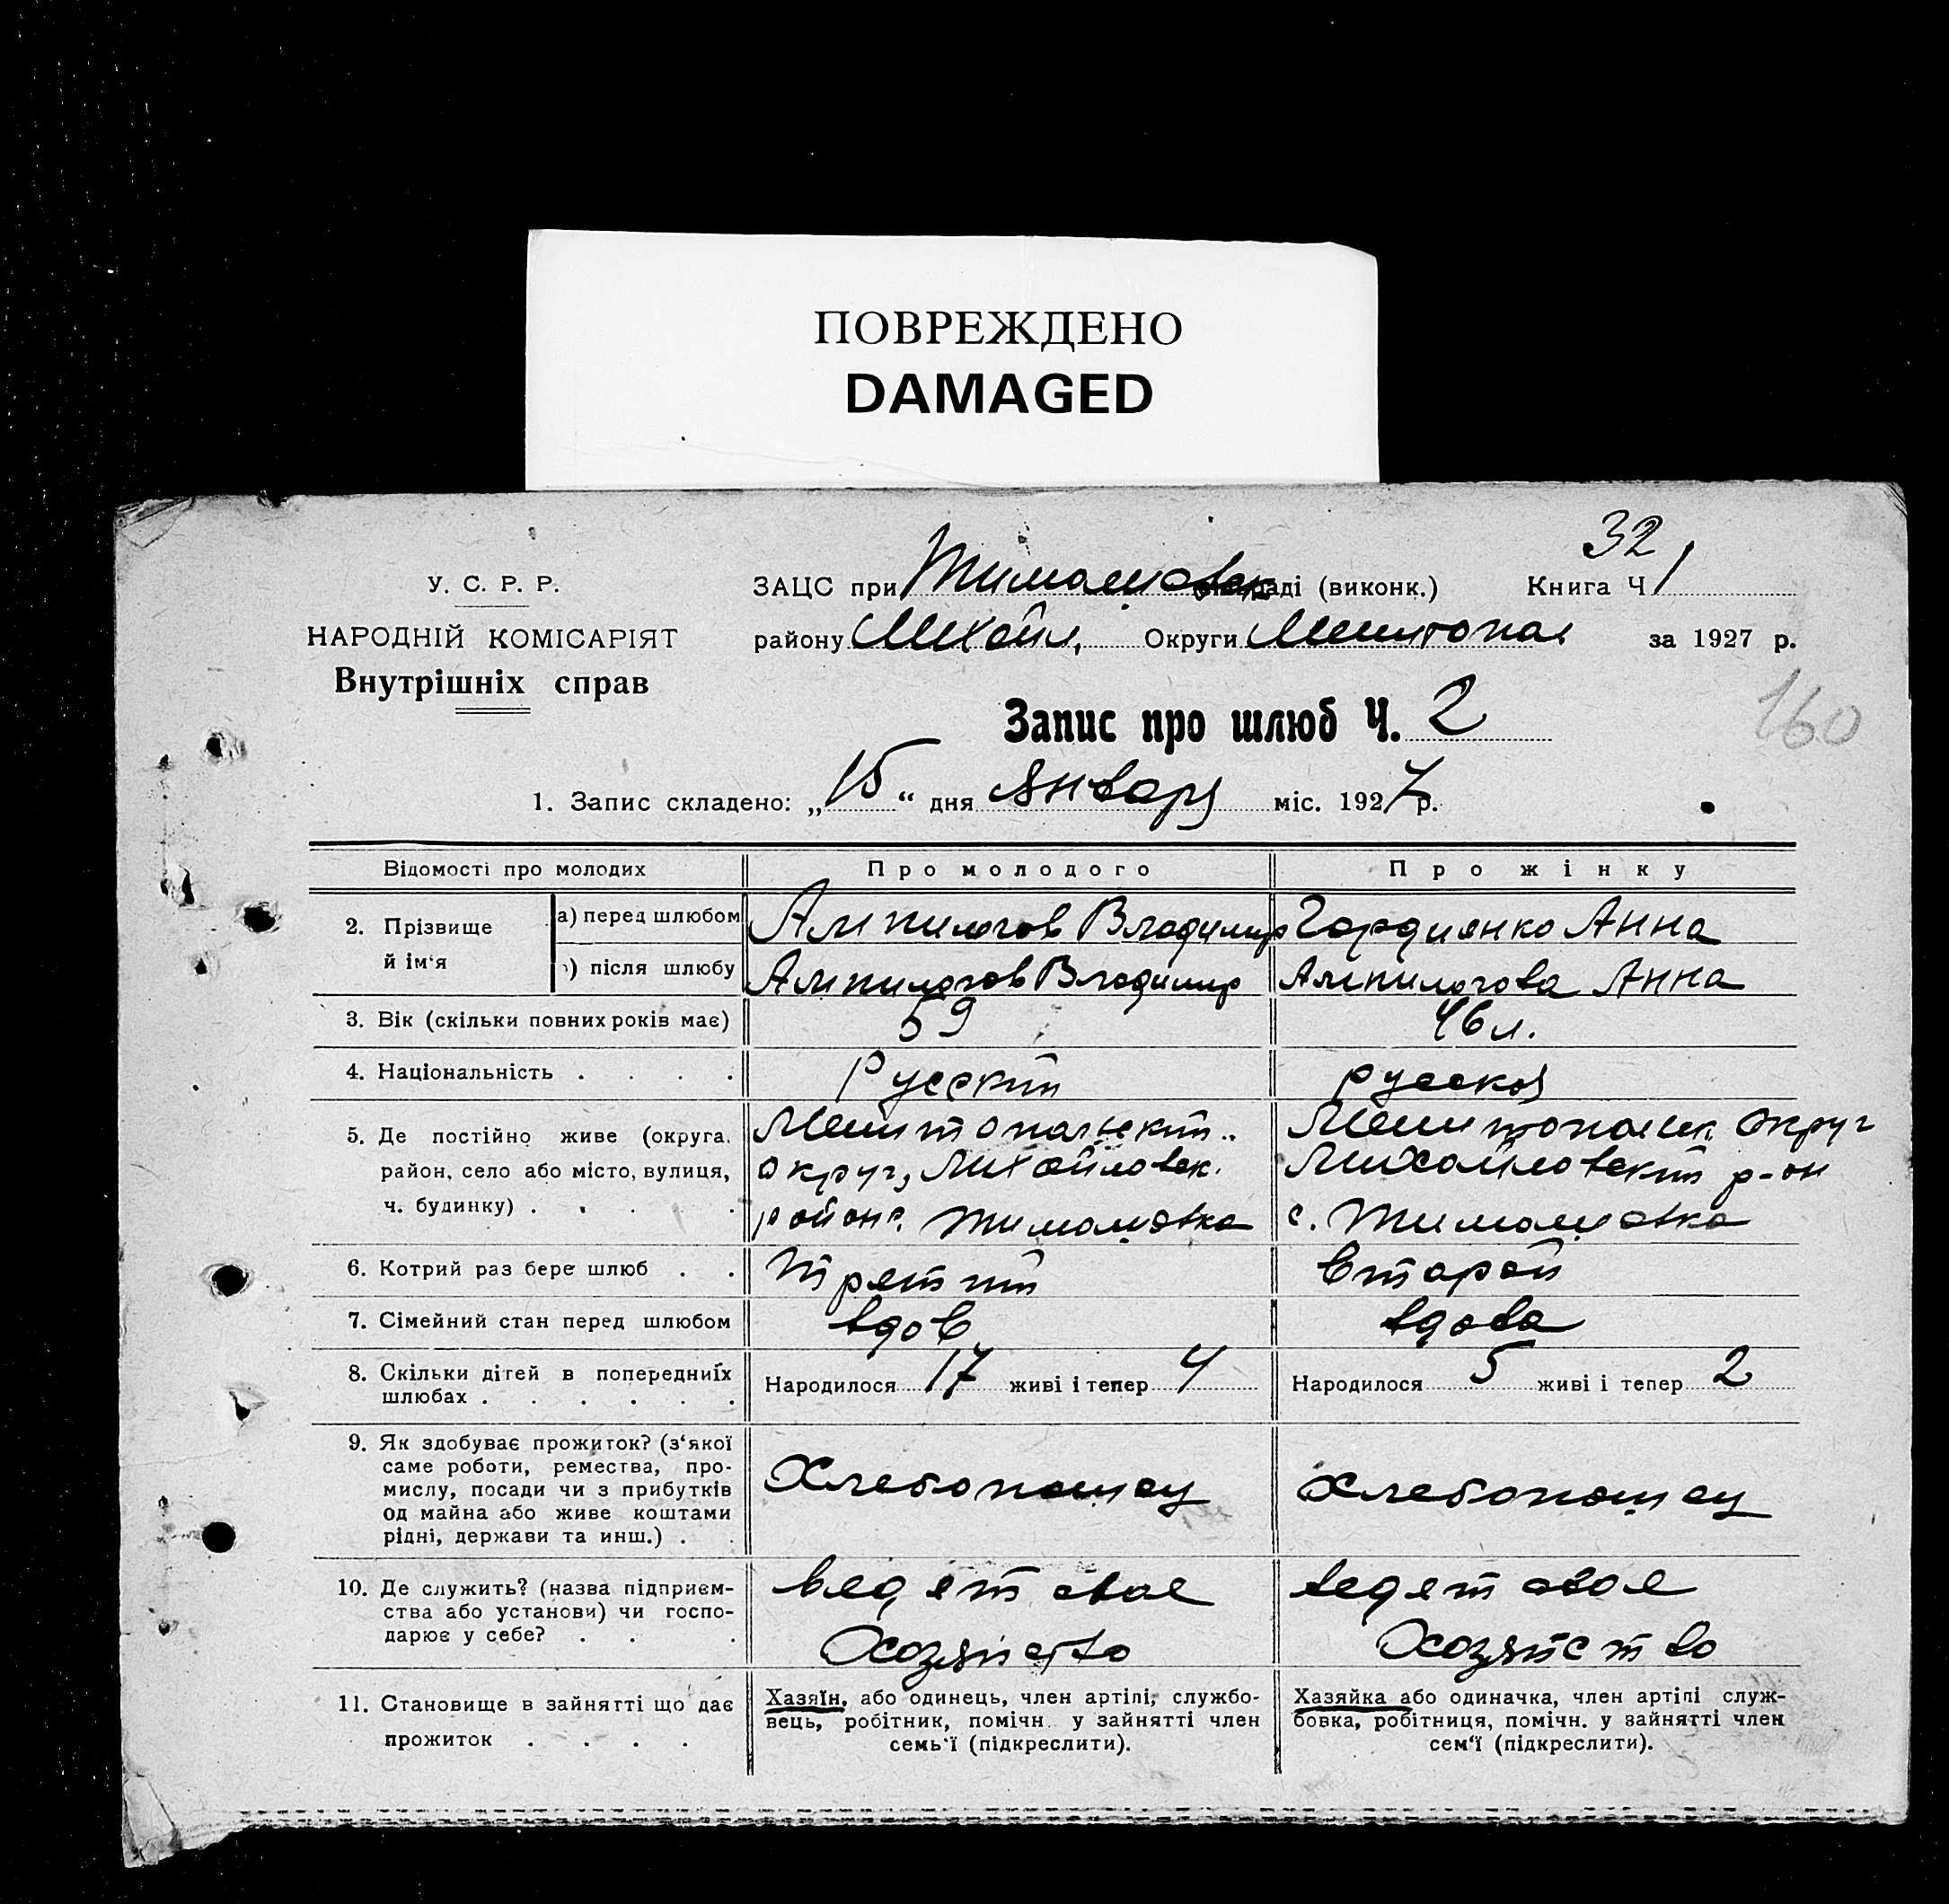 ПОВРЕЖДЕНО
DAMAGED
32
У. С. Р. Р.
ЗАЦС при Тимошовск раді (виконк.) Книга Ч 1
НАРОДНІЙ КОМІСАРІЯТ
району Михайл. Округи Мелитопол за 1927 р.
Внутрішніх справ
160
Запис про шлюб Ч. 2
1. Запис складено: „15“ дня Января міс. 1927 р.
Відомості про молодих Про молодого Про жінку
2. Прізвище й ім‘я а) перед шлюбом Ампилогов Владимир Гордиенко Анна
) після шлюбу Ампилогов Владимир Ампилогова Анна
3. Вік (скільки повних років має) 59 46 л.
4. Національність . . . . Русский русская
5. Де постійно живе (округа, район, село або місто, вулиця, ч. будинку) . . . .
Мелитопольский..
округ, Михайловск.
район с. Тимошовка
Мелитопольск округ
Михайловский р-он
с. Тимошовка
6. Котрий раз бере шлюб . . Третий второй
7. Сімейний стан перед шлюбом вдов вдова
8. Скільки дітей в попередниїх шлюбах . . . . . . Народилося 17 живі і тепер 4 Народилося 5 живі і тепер 2
9. Як здобуває прожиток? (з‘якої
саме роботи, ремества, про-
мислу, посади чи з прибутків
од майна або живе коштами
рідні, держави та инш.) .
Хлебопашец
хлебопашец
10. Де служить? (назва підприєм-
ства або установи) чи госпо-
дарює у себе? . . .
ведет свое
Хозяйство
ведет свое
Хозяйство
11. Становище в зайнятті що дає
прожиток . . . .
Хазяїн, або одинець, член артілі, службо-
вець, робітник, помічн. у зайнятті член
семь‘ї (підкреслити).
Хазяйка або одиначка, член артілі служ-
бовка, робітниця, помічн. у зайнятті член
сем‘ї (підкреслити).